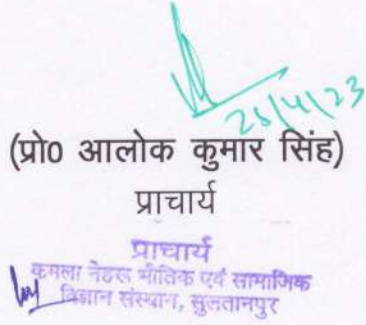 25/4/23
(प्रो0 आलोक कुमार सिंह)
प्राचार्य
प्राचार्य
कमला नेहरू भौतिक एवं सामाजिक
विज्ञान संस्थान, सुलतानपुर